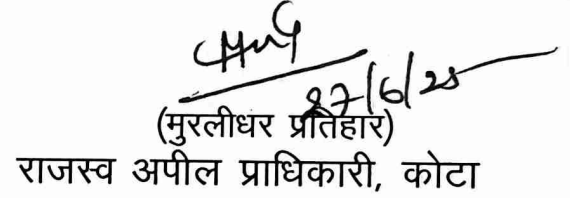 27/6/25
(मुरलीधर प्रतिहार)
राजस्व अपील प्राधिकारी, कोटा